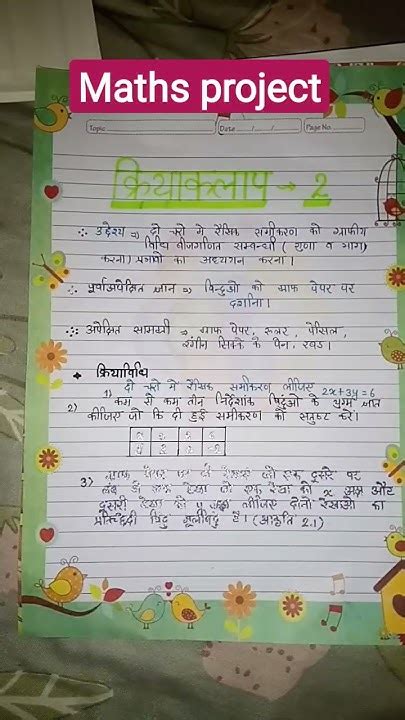 Maths project
Topic
Date
Page No.
क्रियाकलाप → 2
∴ उद्देश्य ⇒ दो चरो मे रैखिक समीकरण को ग्राफीय
विधि बीजगणित सम्बन्धी ( गुणा व भाग)
करना। का अध्ययन करना।
∴ पूर्वापेक्षित ज्ञान ⇒ बिन्दुओ को ग्राफ पेपर पर
दर्शाना।
∴ अपेक्षित सामग्री ⇒ ग्राफ पेपर, रूलर, पेंसिल,
रंगीन सिक्के के पेन, रबड।
क्रियाविधि
1) दो चरो मे रैखिक समीकरण लीजिए 2x+3y=6
2) कम से कम तीन निर्देशांक बिंदुओं के युग्म ज्ञात
कीजिए जो कि दी हुई समीकरण को संतुष्ट करे।
3) ग्राफ पेपर को एक दूसरे पर
रेखा को x अक्ष और
दूसरी रेखा को y लीजिए दोनो रेखाओ का
बिंदु मूलबिंदु है। (आकृति 2.1)